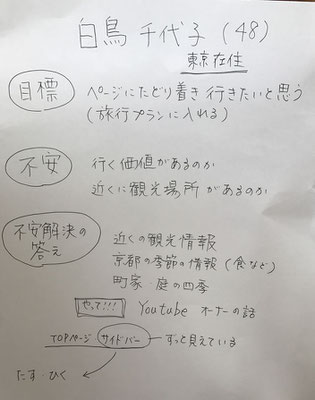 白鳥 千代子 (48)
東京在住
目標
ページにたどり着き 行きたいと思う
(旅行プランに入れる)
不安
行く価値があるのか
近くに観光場所があるのか
不安解決の
答え
近くの観光情報
京都の季節の情報 (食など)
町家・庭の四季
やって!!! Youtube オーナーの話
TOPページ サイドバー ずっと見えている
たす・ひく